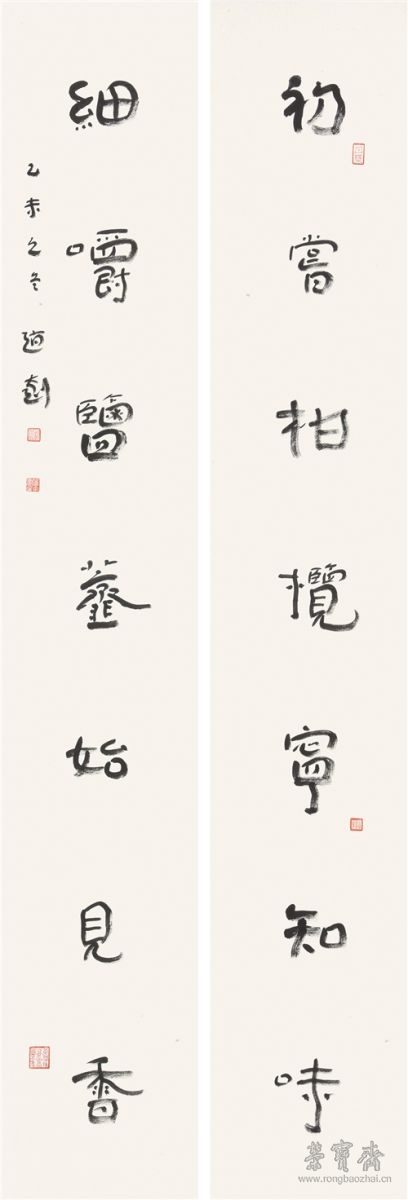 初嘗柑攬寧知味
細嚼鹽虀始見香
乙未之冬
榮寶齋
www.rongbaozhai.cn